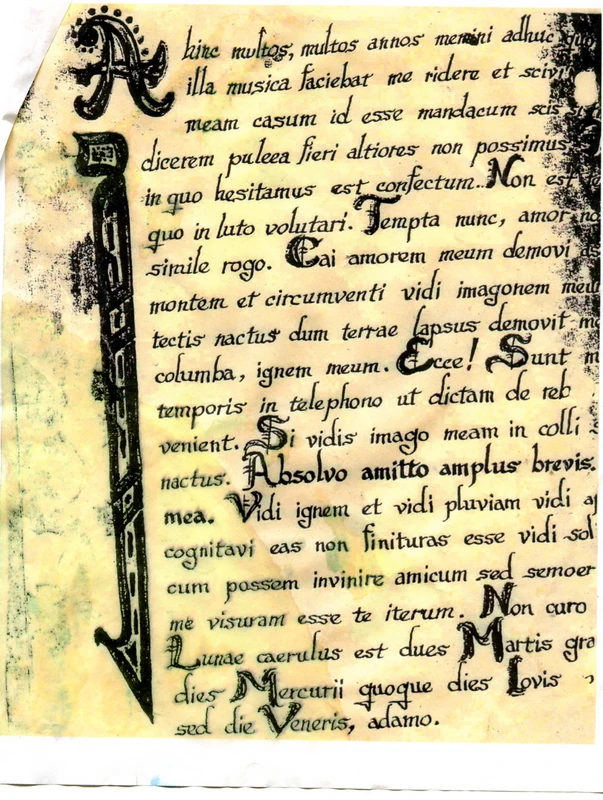 A hinc multos, multos annos memini adhuc quo
illa musica faciebat me ridere et scivi
meam casum id esse mandacum scis si
dicerem puleea fieri altiores non possimus
in quo hesitamus est confectum. Non est
quo in luto volutari. Tempta nunc, amor no
simile rogo. Cai amorem meum demovi
montem et circumventi vidi imagonem meu
tectis nactus dum terrae lapsus demovit
columba, ignem meum. Ecce! Sunt m
temporis in telephono ut dictam de reb
venient. Si vidis imago meam in colli
nactus. Absolvo amitto amplus brevis.
mea. Vidi ignem et vidi pluviam vidi
cognitavi eas non finituras esse vidi sol
cum possem invinire amicum sed semoer
me visuram esse te iterum. Non curo
Lunae caerulus est dues Martis gra
dies Mercurii quoque dies Iovis
sed die Veneris, adamo.